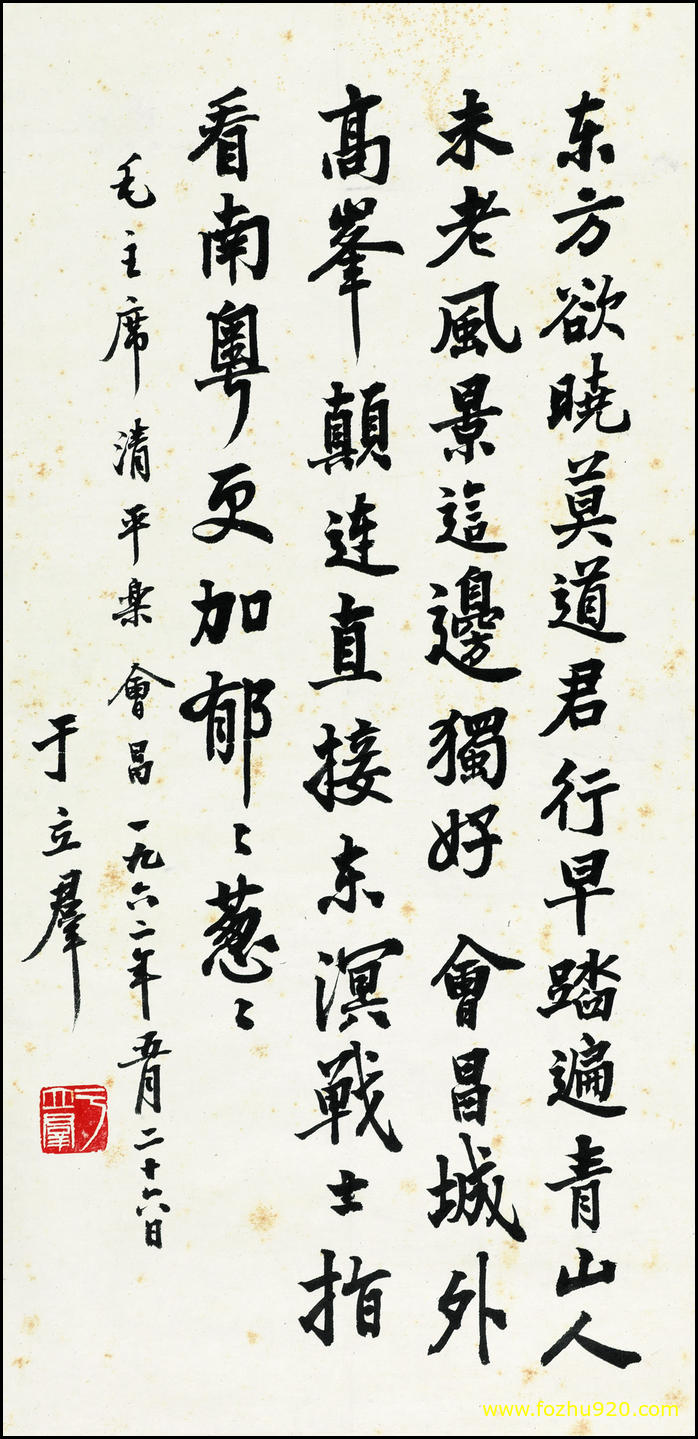 东方欲晓莫道君行早踏遍青山人
未老風景這邊獨好 會昌城外
高峯顛連直接东溟戰士指
看南粤更加郁〻葱〻
毛主席清平楽 會昌 一九六二年五月二十六日
于立羣
于立羣
www.fozhu920.com